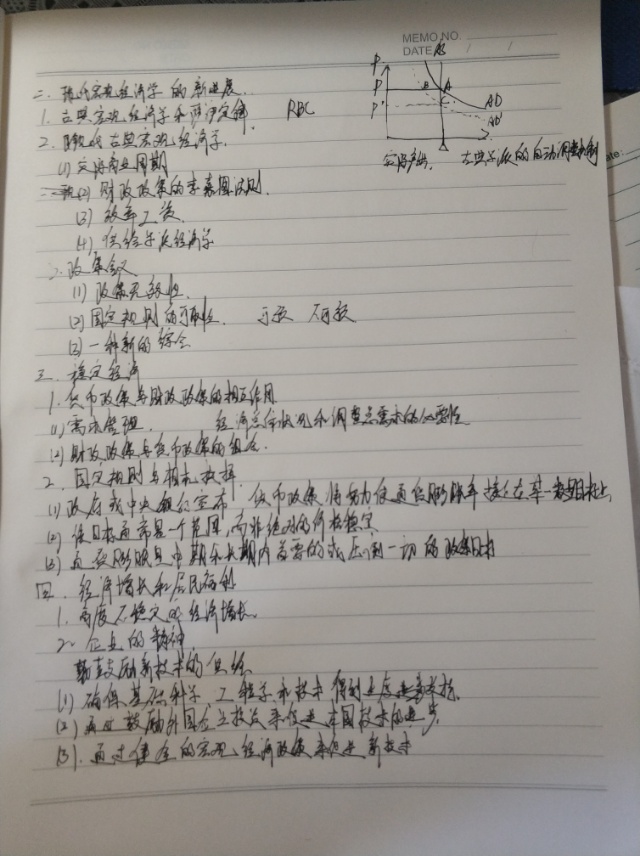 MEMO NO.
DATE / /
P AS
P B A
P' AD
AD'
二. 现代宏观经济学的新进展.
1. 古典宏观经济学和萨伊定律 RBC
2. 现代古典宏观经济学.
实际产出 古典学派的自动调整机制
(1) 实际商业周期
(2) 财政政策的李嘉图法则.
(3) 效率工资.
(4) 供给学派经济学
3. 政策含义
(1) 政策无效性.
(2) 固定规则的可取性.
(3) 一种新的综合
三. 稳定经济
1. 货币政策与财政政策的相互作用
(1) 需求管理. 经济总体状况和调整总需求的必要性
(2) 财政政策与货币政策的组合.
2. 固定规则与相机抉择.
(1) 政府或中央银行宣布 货币政策将努力使通货膨胀率接近在某一数字目标上
(2) 使目标通常是一个范围, 而非绝对的价格稳定
(3) 通货膨胀是中期和长期内首要的或压倒一切的政策目标
四. 经济增长和居民福利
1. 再度不稳定的经济增长.
2. 企业的精神
鼓励新技术的供给
(1) 确保基础科学、工程学和技术得到
(2) 通过鼓励外国企业投资来促进本国技术的进步.
(3). 通过健全的宏观经济政策来促进新技术